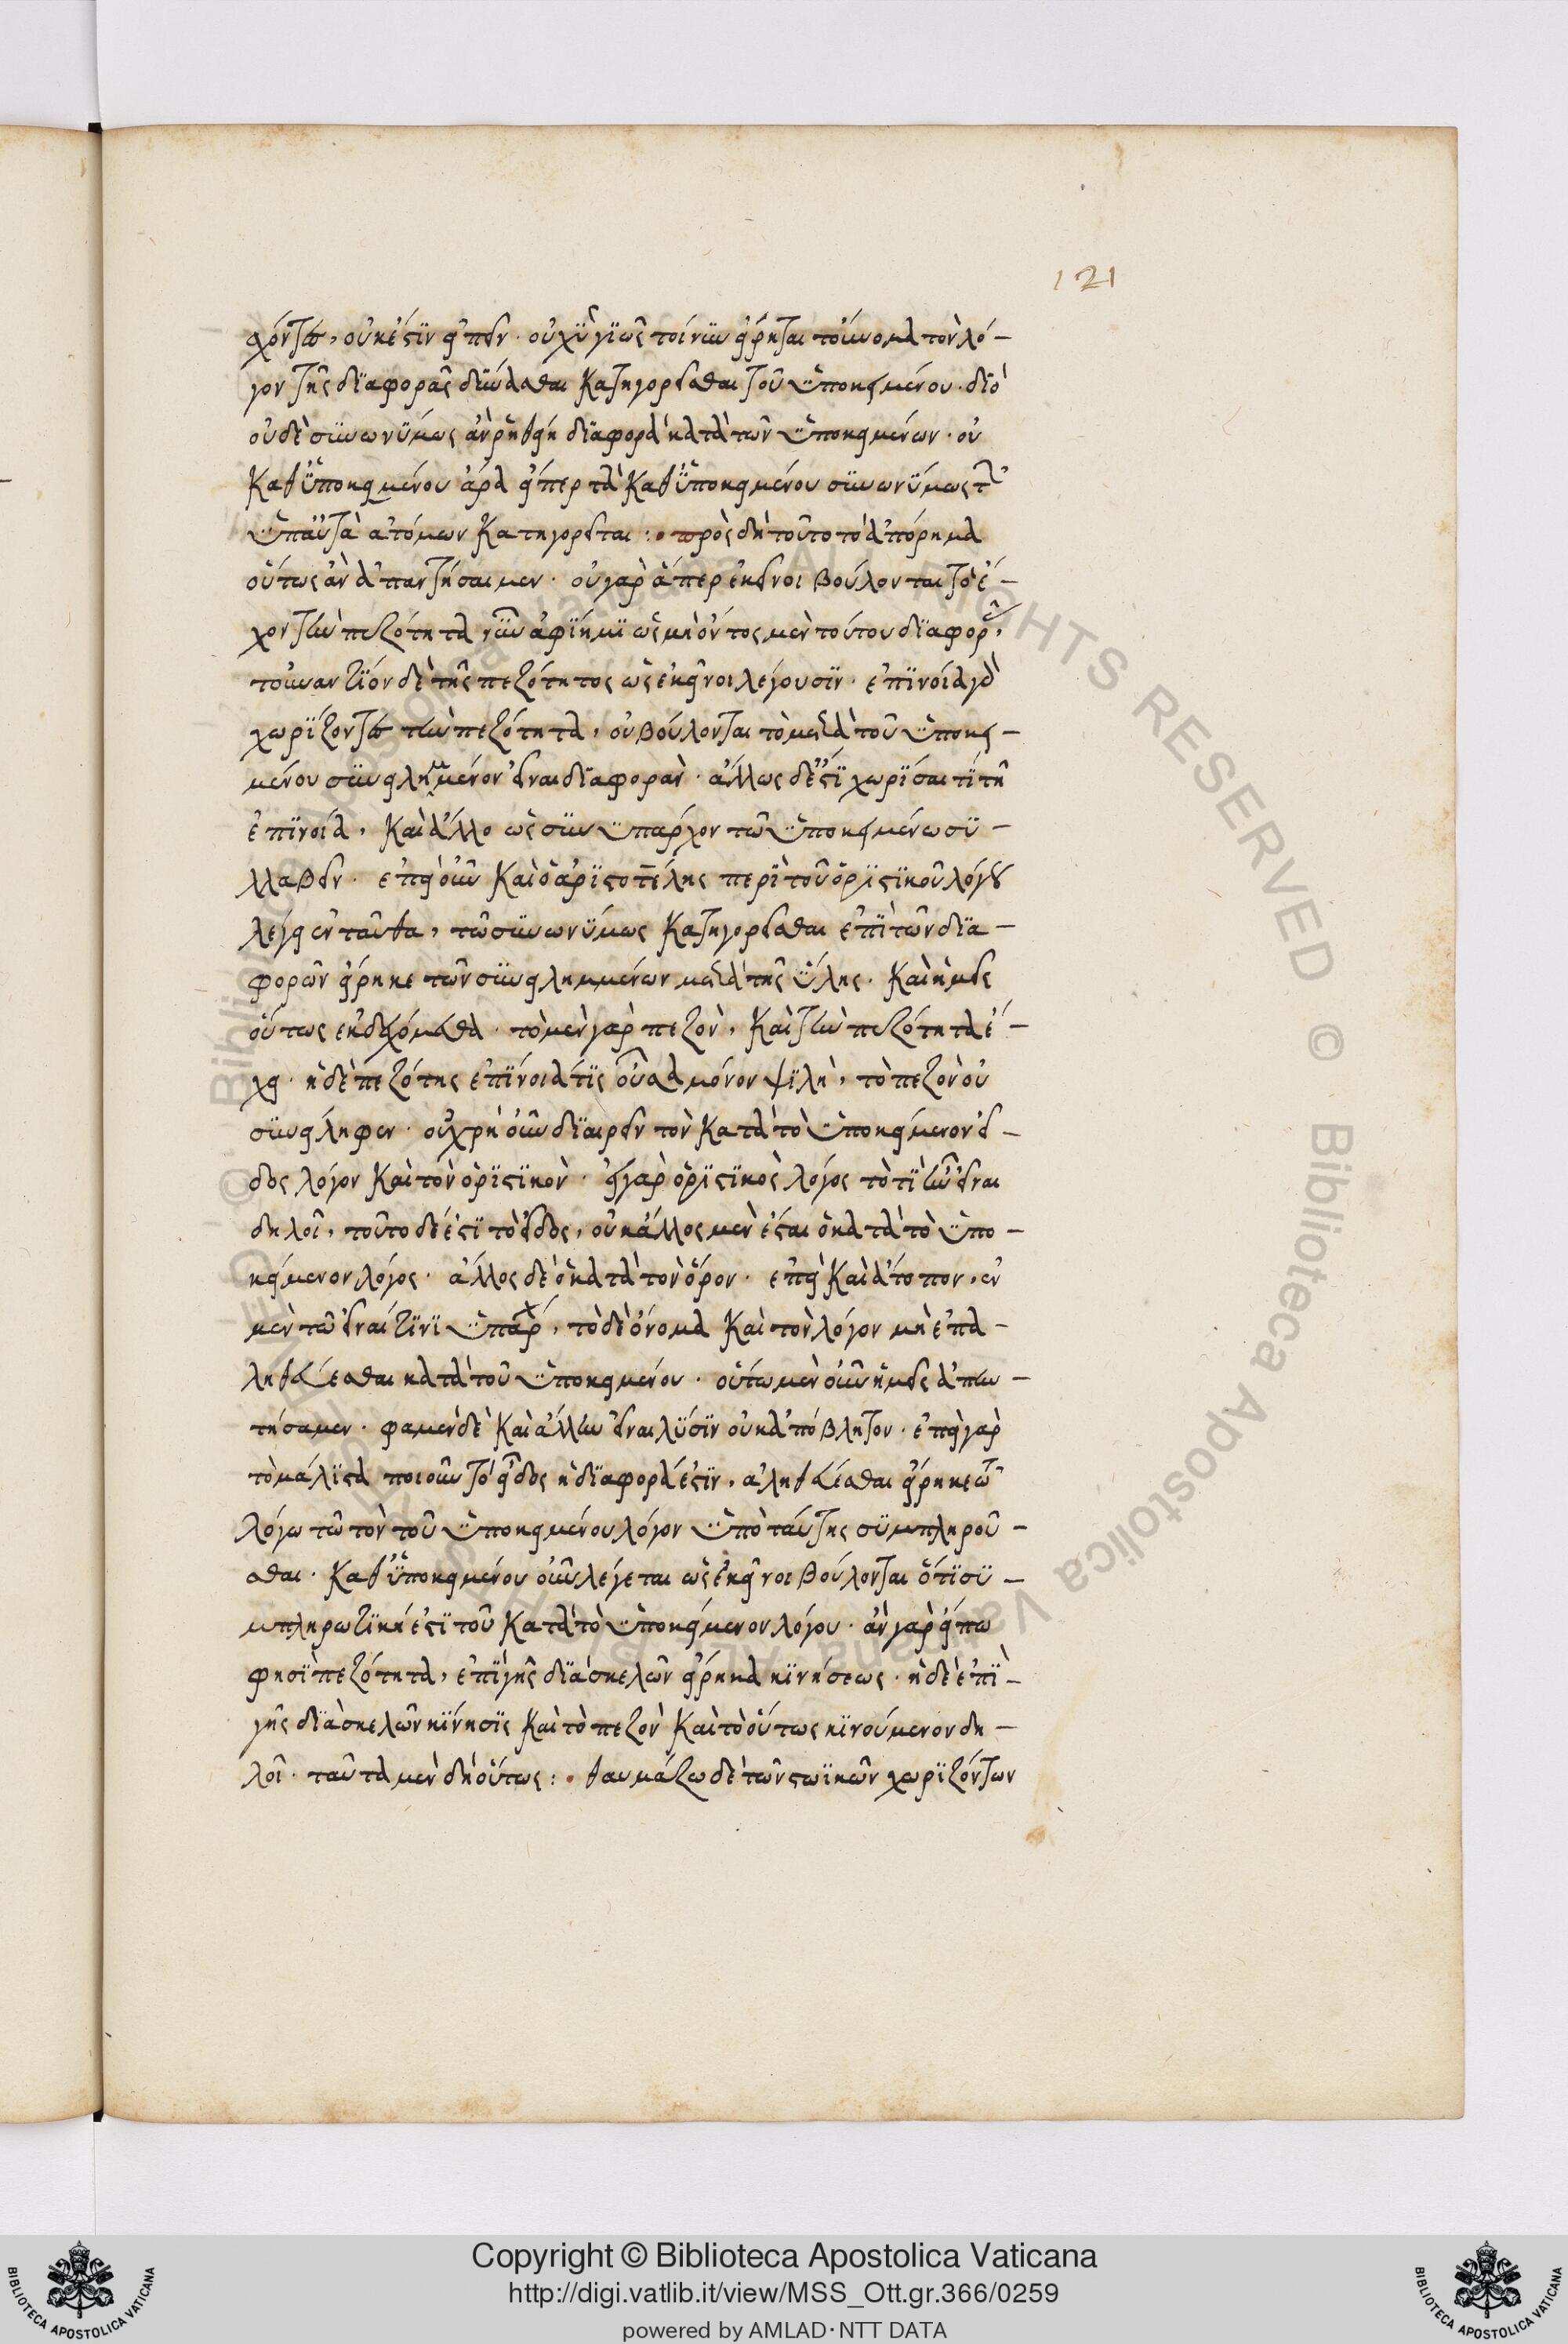 121
χόντων, οὐκ ἔστιν εἰπεῖν. οὐχ ὑγιῶς τοίνυν εἴρηται τοὔνομα τὸν λό-
γον τῆς διαφορᾶς δύνασθαι κατηγορεῖσθαι τοῦ ὑποκειμένου. διὸ
οὐδὲ συνωνύμως ἂν ῥηθείη διαφορὰ κατὰ τῶν ὑποκειμένων. οὐ
καθ' ὑποκειμένου ἄρα εἴπερ τὰ καθ' ὑποκειμένου συνωνύμως τῶν
ὑπ' αὐτὰ ἀτόμων κατηγορεῖται: πρὸς δὴ τοῦτο τὸ ἀπόρημα
οὕτως ἂν ἀπαντήσαιμεν. οὐ γὰρ ἅπερ ἐκεῖνοι βούλονται τὸ ἔ-
χον τὴν πεζότητα, νῦν ἀφίημι ὡς μὴ ὄντος μὲν τούτου διαφορᾶς,
τοὐναντίον δὲ τῆς πεζότητος ὡς ἐκεῖνοι λέγουσιν. ἐπινοίᾳ γὰρ
χωρίζοντες τὴν πεζότητα, οὐ βούλονται τὸ μετὰ τοῦ ὑποκει-
μένου συνειλημμένον εἶναι διαφοράν. ἄλλως δέ ἐστι χωρίσαι τι τῇ
ἐπινοίᾳ, καὶ ἄλλο ὡς συνυπάρχον τῷ ὑποκειμένῳ συ-
λλαβεῖν. ἐπεὶ οὖν καὶ ὁ ἀριστοτέλης περὶ τοῦ ὁριστικοῦ λόγου
λέγει ἐνταῦθα, τῷ συνωνύμως κατηγορεῖσθαι ἐπὶ τῶν δια-
φορῶν εἴρηκε τῶν συνειλημμένων μετὰ τῆς ὕλης. καὶ ἡμεῖς
οὕτως ἐκδεχόμεθα. τὸ μὲν γὰρ πεζὸν, καὶ τὴν πεζότητα ἔ-
χει. ἡ δὲ πεζότης ἐπίνοιά τις οὖσα μόνον ψιλὴ, τὸ πεζὸν οὐ
συνείληφεν. οὐ χρὴ οὖν διαιρεῖν τὸν κατὰ τὸ ὑποκείμενον εἶ-
δος λόγον καὶ τὸν ὁριστικὸν. εἰ γὰρ ὁριστικὸς λόγος τὸ τί ἦν εἶναι
δηλοῖ, τοῦτο δέ ἐστι τὸ εἶδος, οὐκ ἄλλος μὲν ἔσται ὁ κατὰ τὸ ὑπο-
κείμενον λόγος. ἄλλος δὲ ὁ κατὰ τὸν ὅρον. ἐπεὶ καὶ ἄτοπον, ἐν
μὲν τῷ εἶναί τινι ὑπάρχειν, τὸ δὲ ὄνομα καὶ τὸν λόγον μὴ ἐπα-
ληθεύεσθαι κατὰ τοῦ ὑποκειμένου. οὕτω μὲν οὖν ἡμεῖς ἀπην-
τήσαμεν. φαμὲν δὲ καὶ ἄλλην εἶναι λύσιν οὐκ ἀπόβλητον. ἐπεὶ γὰρ
τὸ μάλιστα ποιοῦν τὸ εἶδος ἡ διαφορά ἐστιν, ἀληθεύεσθαι εἴρηκε τῷ
λόγῳ τῷ τὸν τοῦ ὑποκειμένου λόγον ὑπὸ ταύτης συμπληροῦ-
σθαι. καθ' ὑποκειμένου οὖν λέγεται ὡς ἐκεῖνοι βούλονται ὅτι συ-
μπληρωτική ἐστι τοῦ κατὰ τὸ ὑποκείμενον λόγου. ἂν γὰρ εἴπω
φησὶ πεζότητα, ἐπὶ γῆς διὰ σκελῶν εἴρηκα κινήσεως. ἡ δὲ ἐπὶ-
γῆς διὰ σκελῶν κίνησις καὶ τὸ πεζὸν καὶ τὸ οὕτως κινούμενον δη-
λοῖ. ταῦτα μὲν δὴ οὕτως: θαυμάζω δὲ τῶν στωϊκῶν χωριζόντων
Copyright © Biblioteca Apostolica Vaticana
http://digi.vatlib.it/view/MSS_Ott.gr.366/0259
powered by AMLAD·NTT DATA